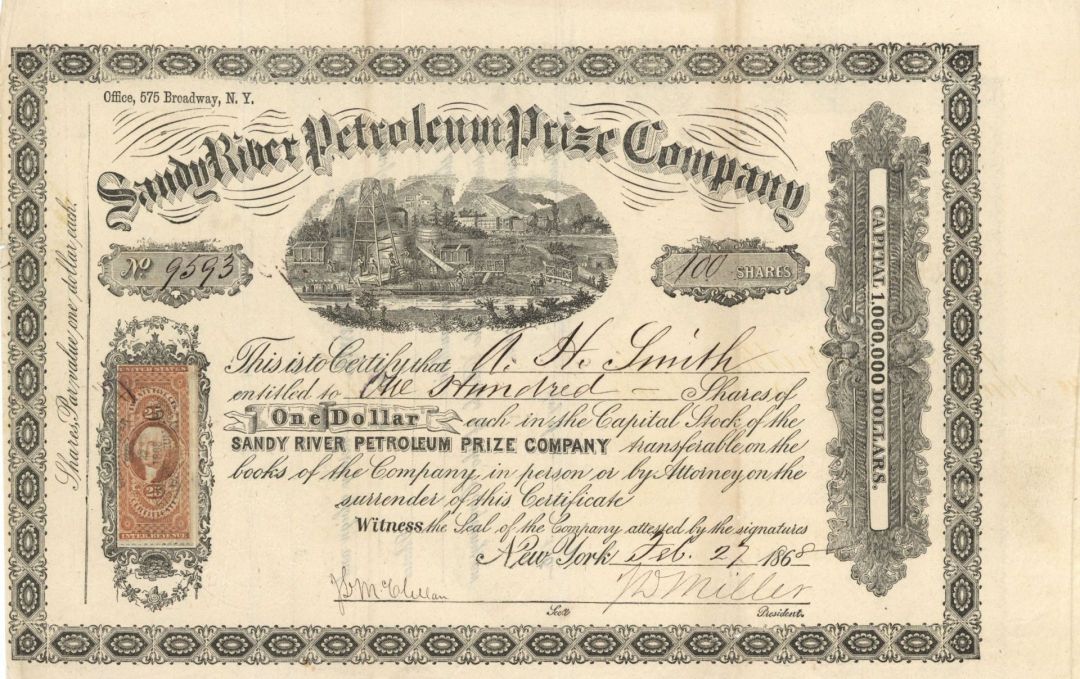 Office, 575 Broadway, N. Y.
Sandy River Petroleum Prize Company
No 9593
100 SHARES
Shares, Par value, one dollar each.
CAPITAL 1,000,000 DOLLARS.
25
25
INTER. REVENUE
This is to Certify that A. H. Smith
entitled to One Hundred — Shares of
One Dollar each in the Capital Stock of the
SANDY RIVER PETROLEUM PRIZE COMPANY transferable on the
books of the Company, in person or by Attorney, on the
surrender of this Certificate
Witness the Seal of the Company attested by the signatures
New York Feb. 27 1868
McClellan
Miller
Sect
President.